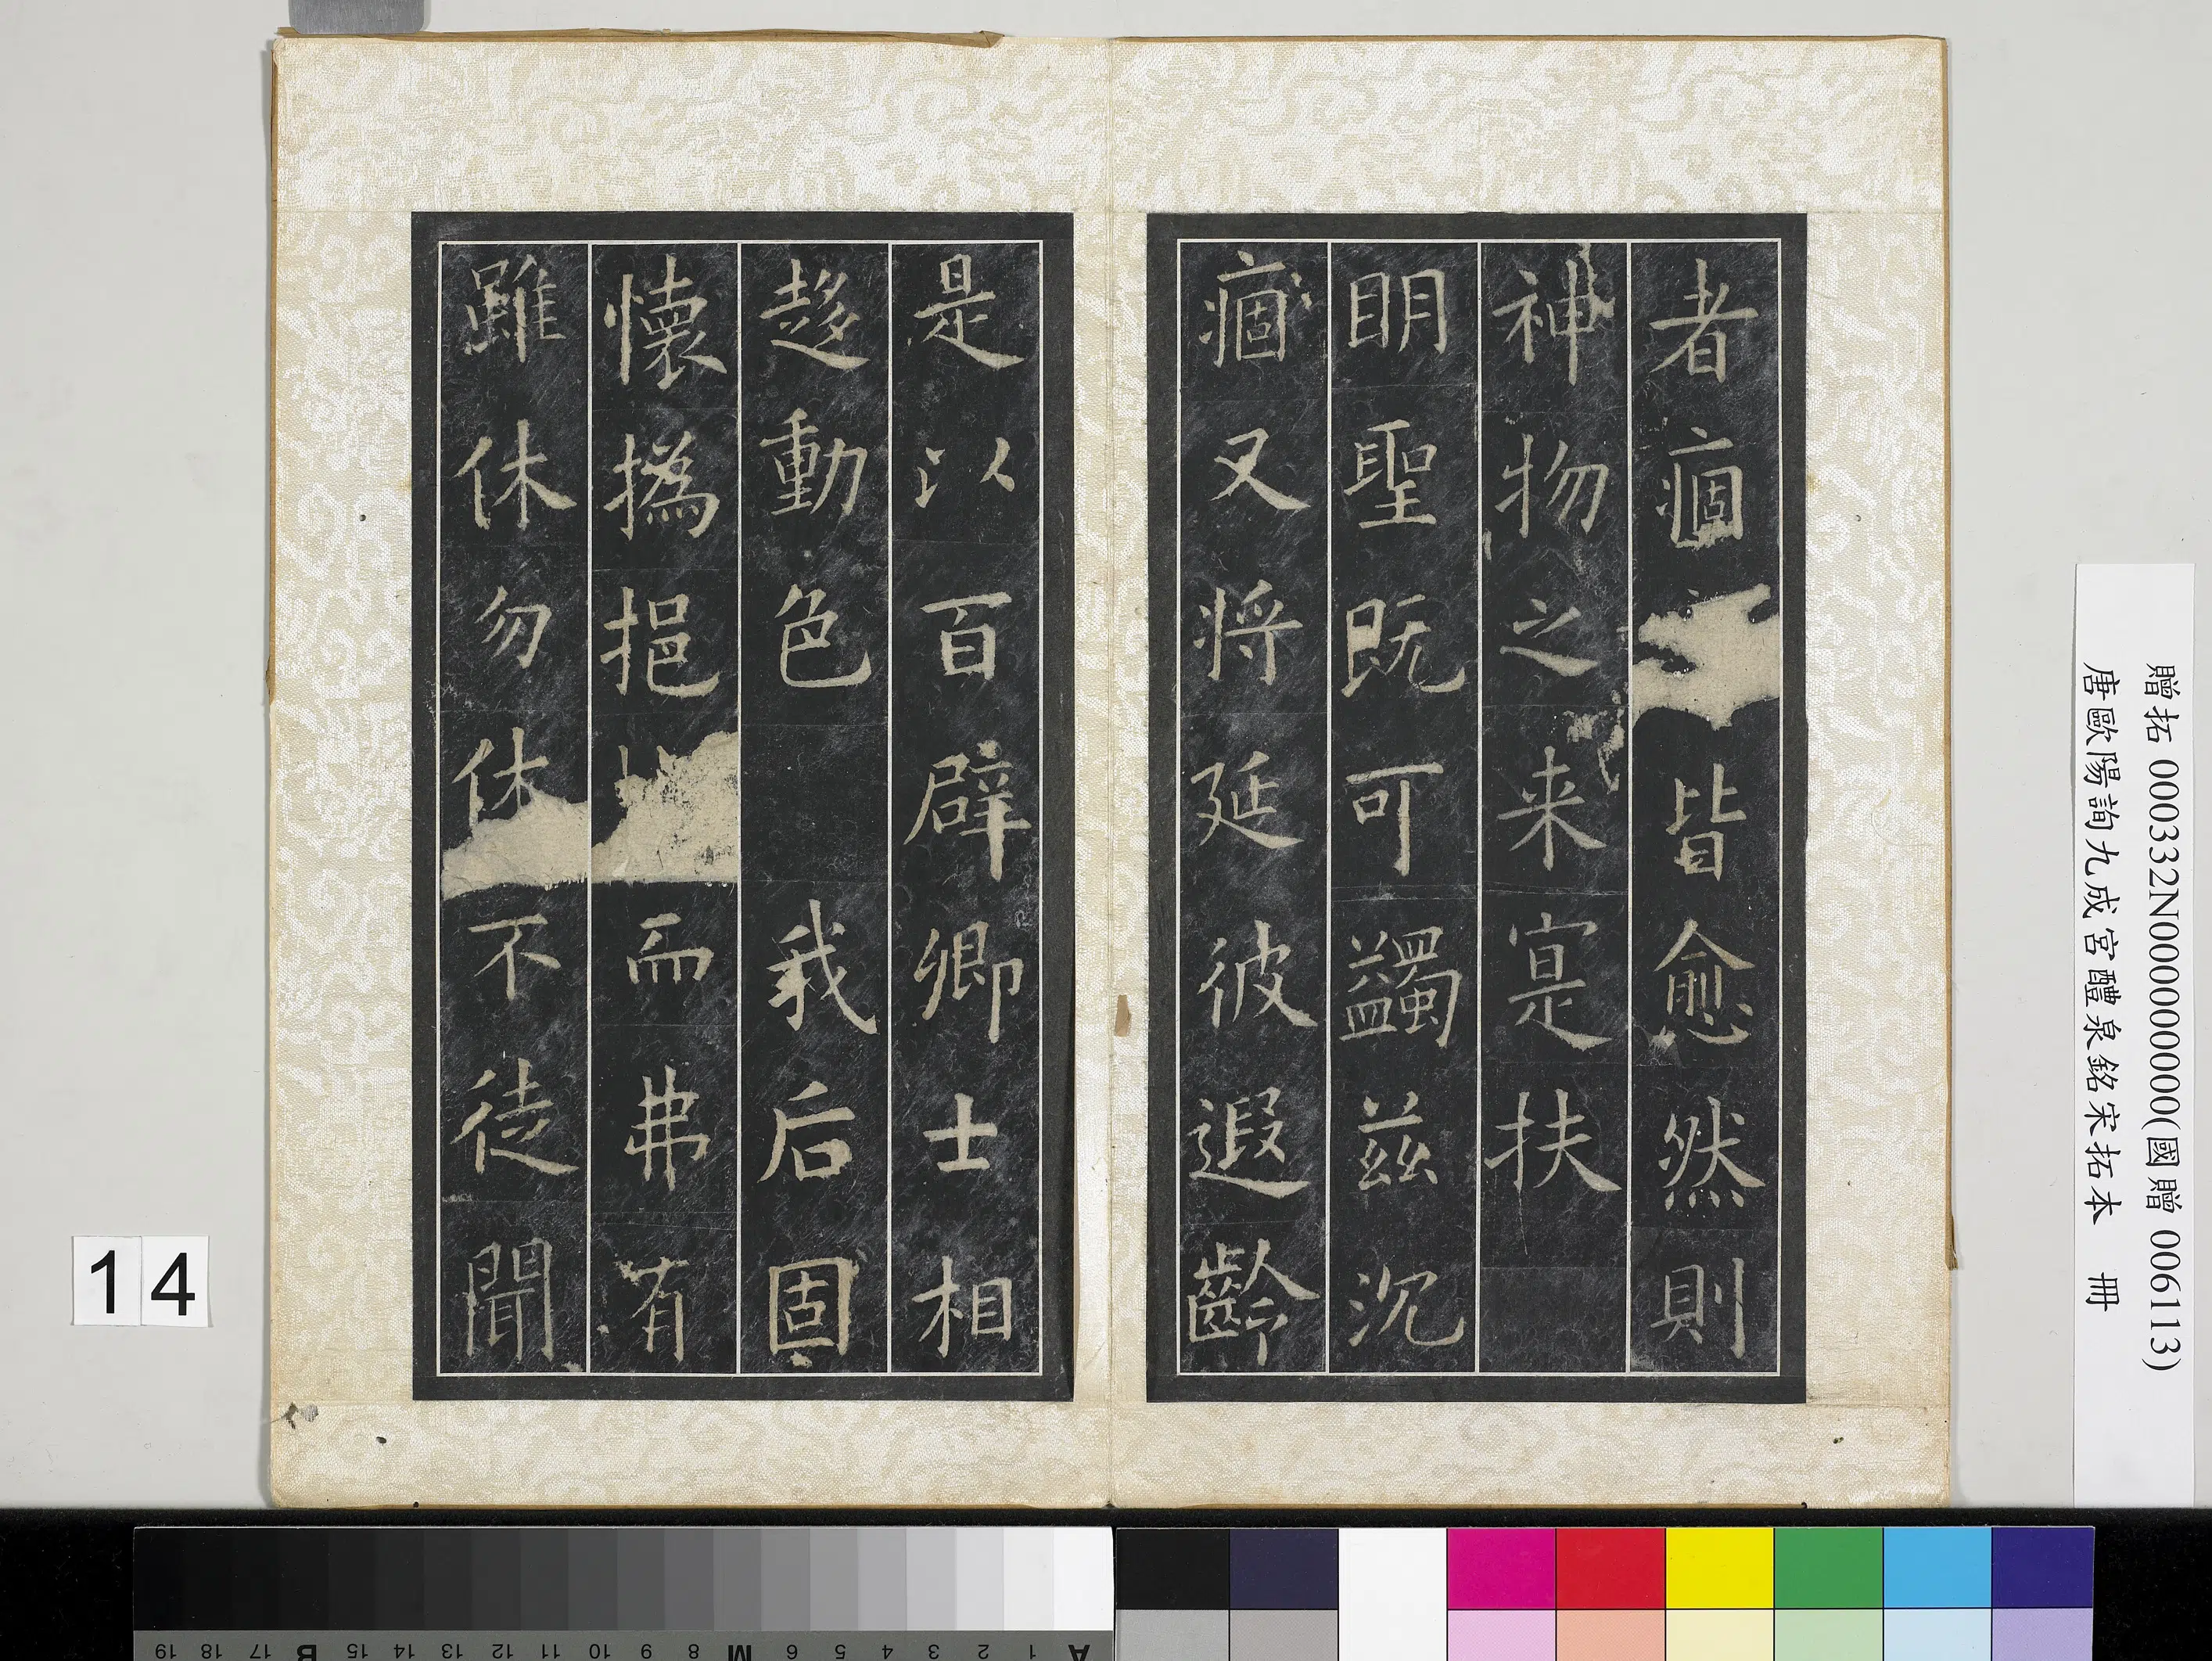 者痼皆愈然則
神物之来寔扶
眀聖既可蠲茲沉
痼又将延彼遐齡
是以百辟卿士相
趍動色我后固
懷撝挹而弗有
雖休勿休不徒聞
贈拓 000332N000000000(國贈 006113)
唐歐陽詢九成宮醴泉銘宋拓本 冊
14
A 1 2 3 4 5 6 M 8 9 10 11 12 13 14 15 B 17 18 19